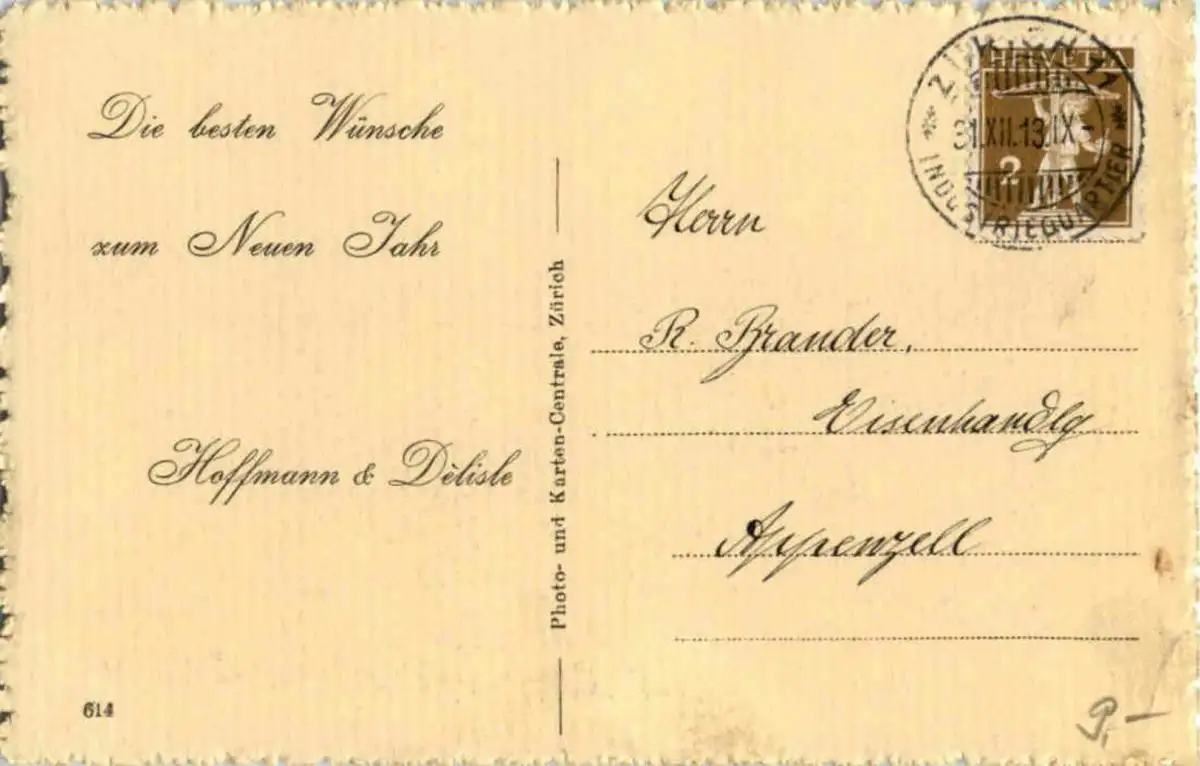 Die besten Wünsche
zum Neuen Jahr
Hoffmann & Dèlisle
614
Photo- und Karten-Centrale, Zürich
ZÜRICH 11
31.XII.13.IX-
INDUSTRIEQUARTIER
HELVETIA
2
Herrn
R. Brander,
Eisenhandlg
Appenzell